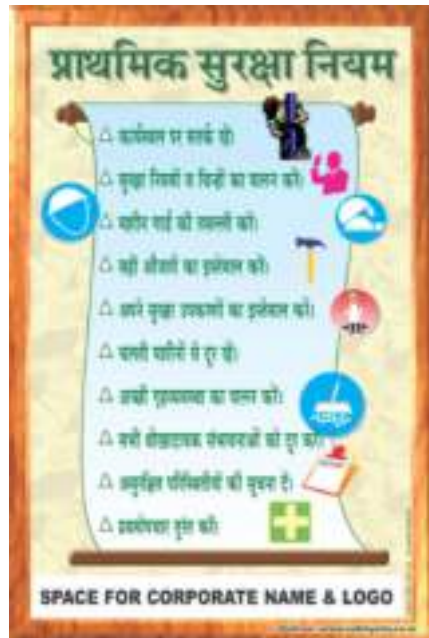 प्राथमिक सुरक्षा नियम
कार्यस्थल पर सतर्क रहें।
सुरक्षा नियमों व चिन्हों का पालन करें।
मशीन गार्ड की तसल्ली करें।
सही औजारों का इस्तेमाल करें।
अपने सुरक्षा उपकरणों का इस्तेमाल करें।
चलती मशीनों से दूर रहें।
अच्छी गृहव्यवस्था का पालन करें।
सभी धोखादायक संभावनाओं को दूर करें।
असुरक्षित परिस्थितीयों की सूचना दें।
प्रथमोपचार तुरंत करें।
SPACE FOR CORPORATE NAME & LOGO